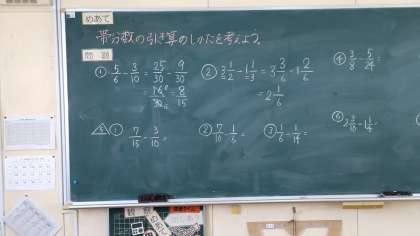 めあて
帯分数の引き算のしかたを考えよう。
問題
① 5/6 - 3/10 = 25/30 - 9/30
= 16/30 = 8/15
② 3 1/2 - 1 1/3 = 3 3/6 - 1 2/6
= 2 1/6
④ 3/8 - 5/24 =
① 7/15 - 3/10 =
② 7/10 - 1/6 =
③ 1/6 - 1/14 =
2 3/10 - 1 1/4 =